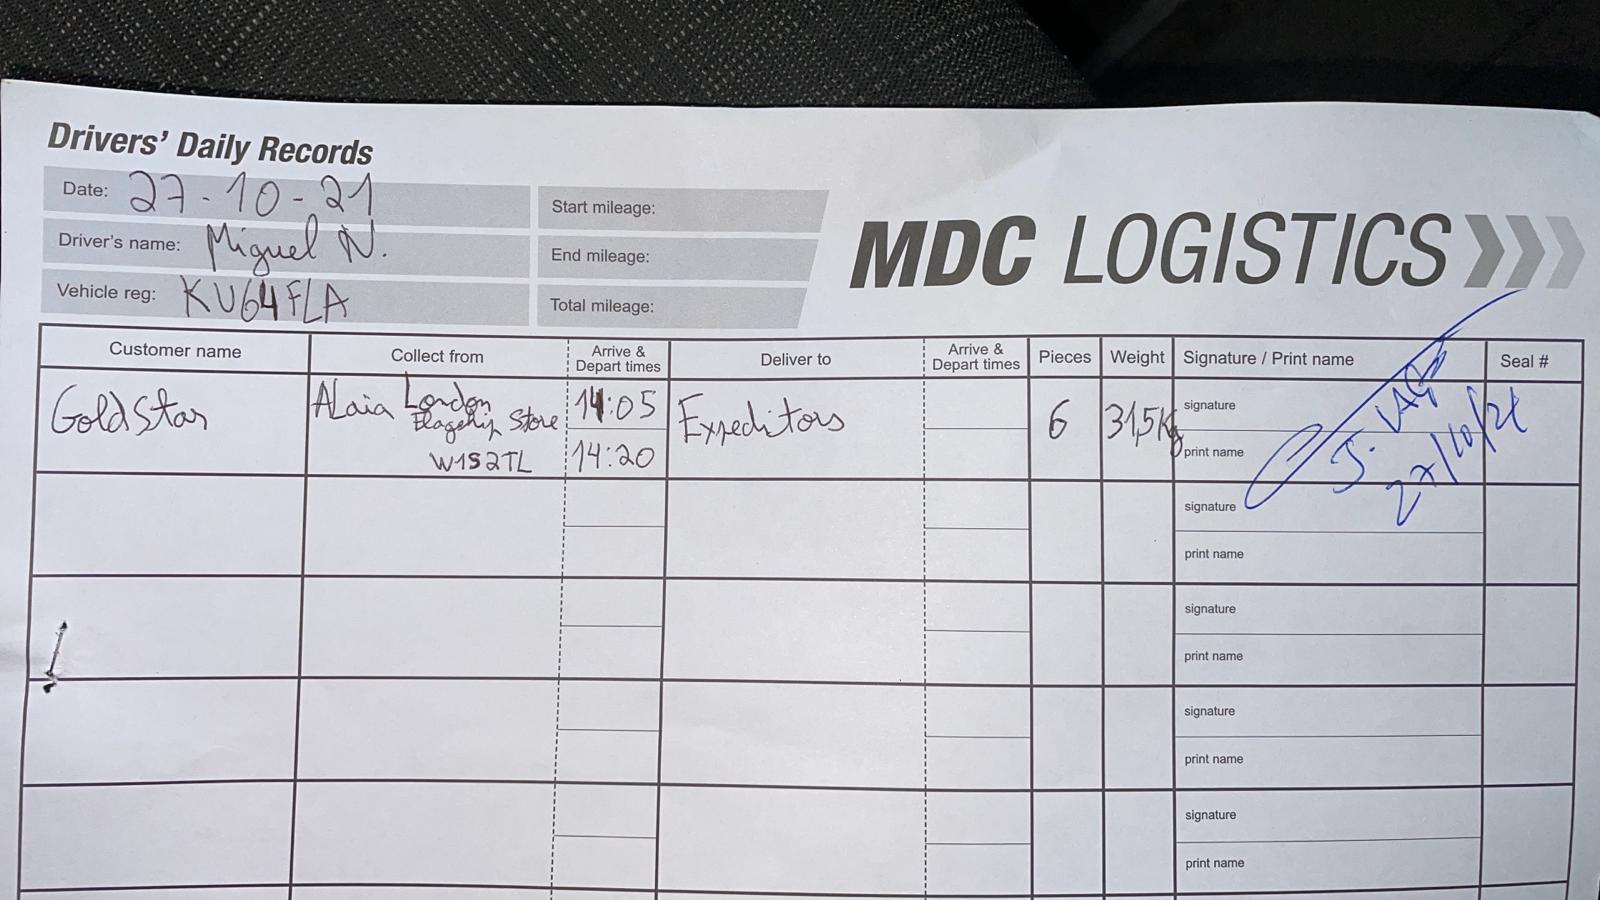 Drivers' Daily Records
Date: 27-10-21
Driver's name: Miguel N.
Vehicle reg: KU64FLA
Start mileage:
End mileage:
Total mileage:
MDC LOGISTICS
Customer name Collect from Arrive & Depart times Deliver to Arrive & Depart times Pieces Weight Signature / Print name Seal #
GoldStar ALaia London Flagship Store W1S2TL 14:05 14:20 Expeditors 6 31,5Kg signature
print name J. 27/10/21
signature
print name
signature
print name
signature
print name
signature
print name